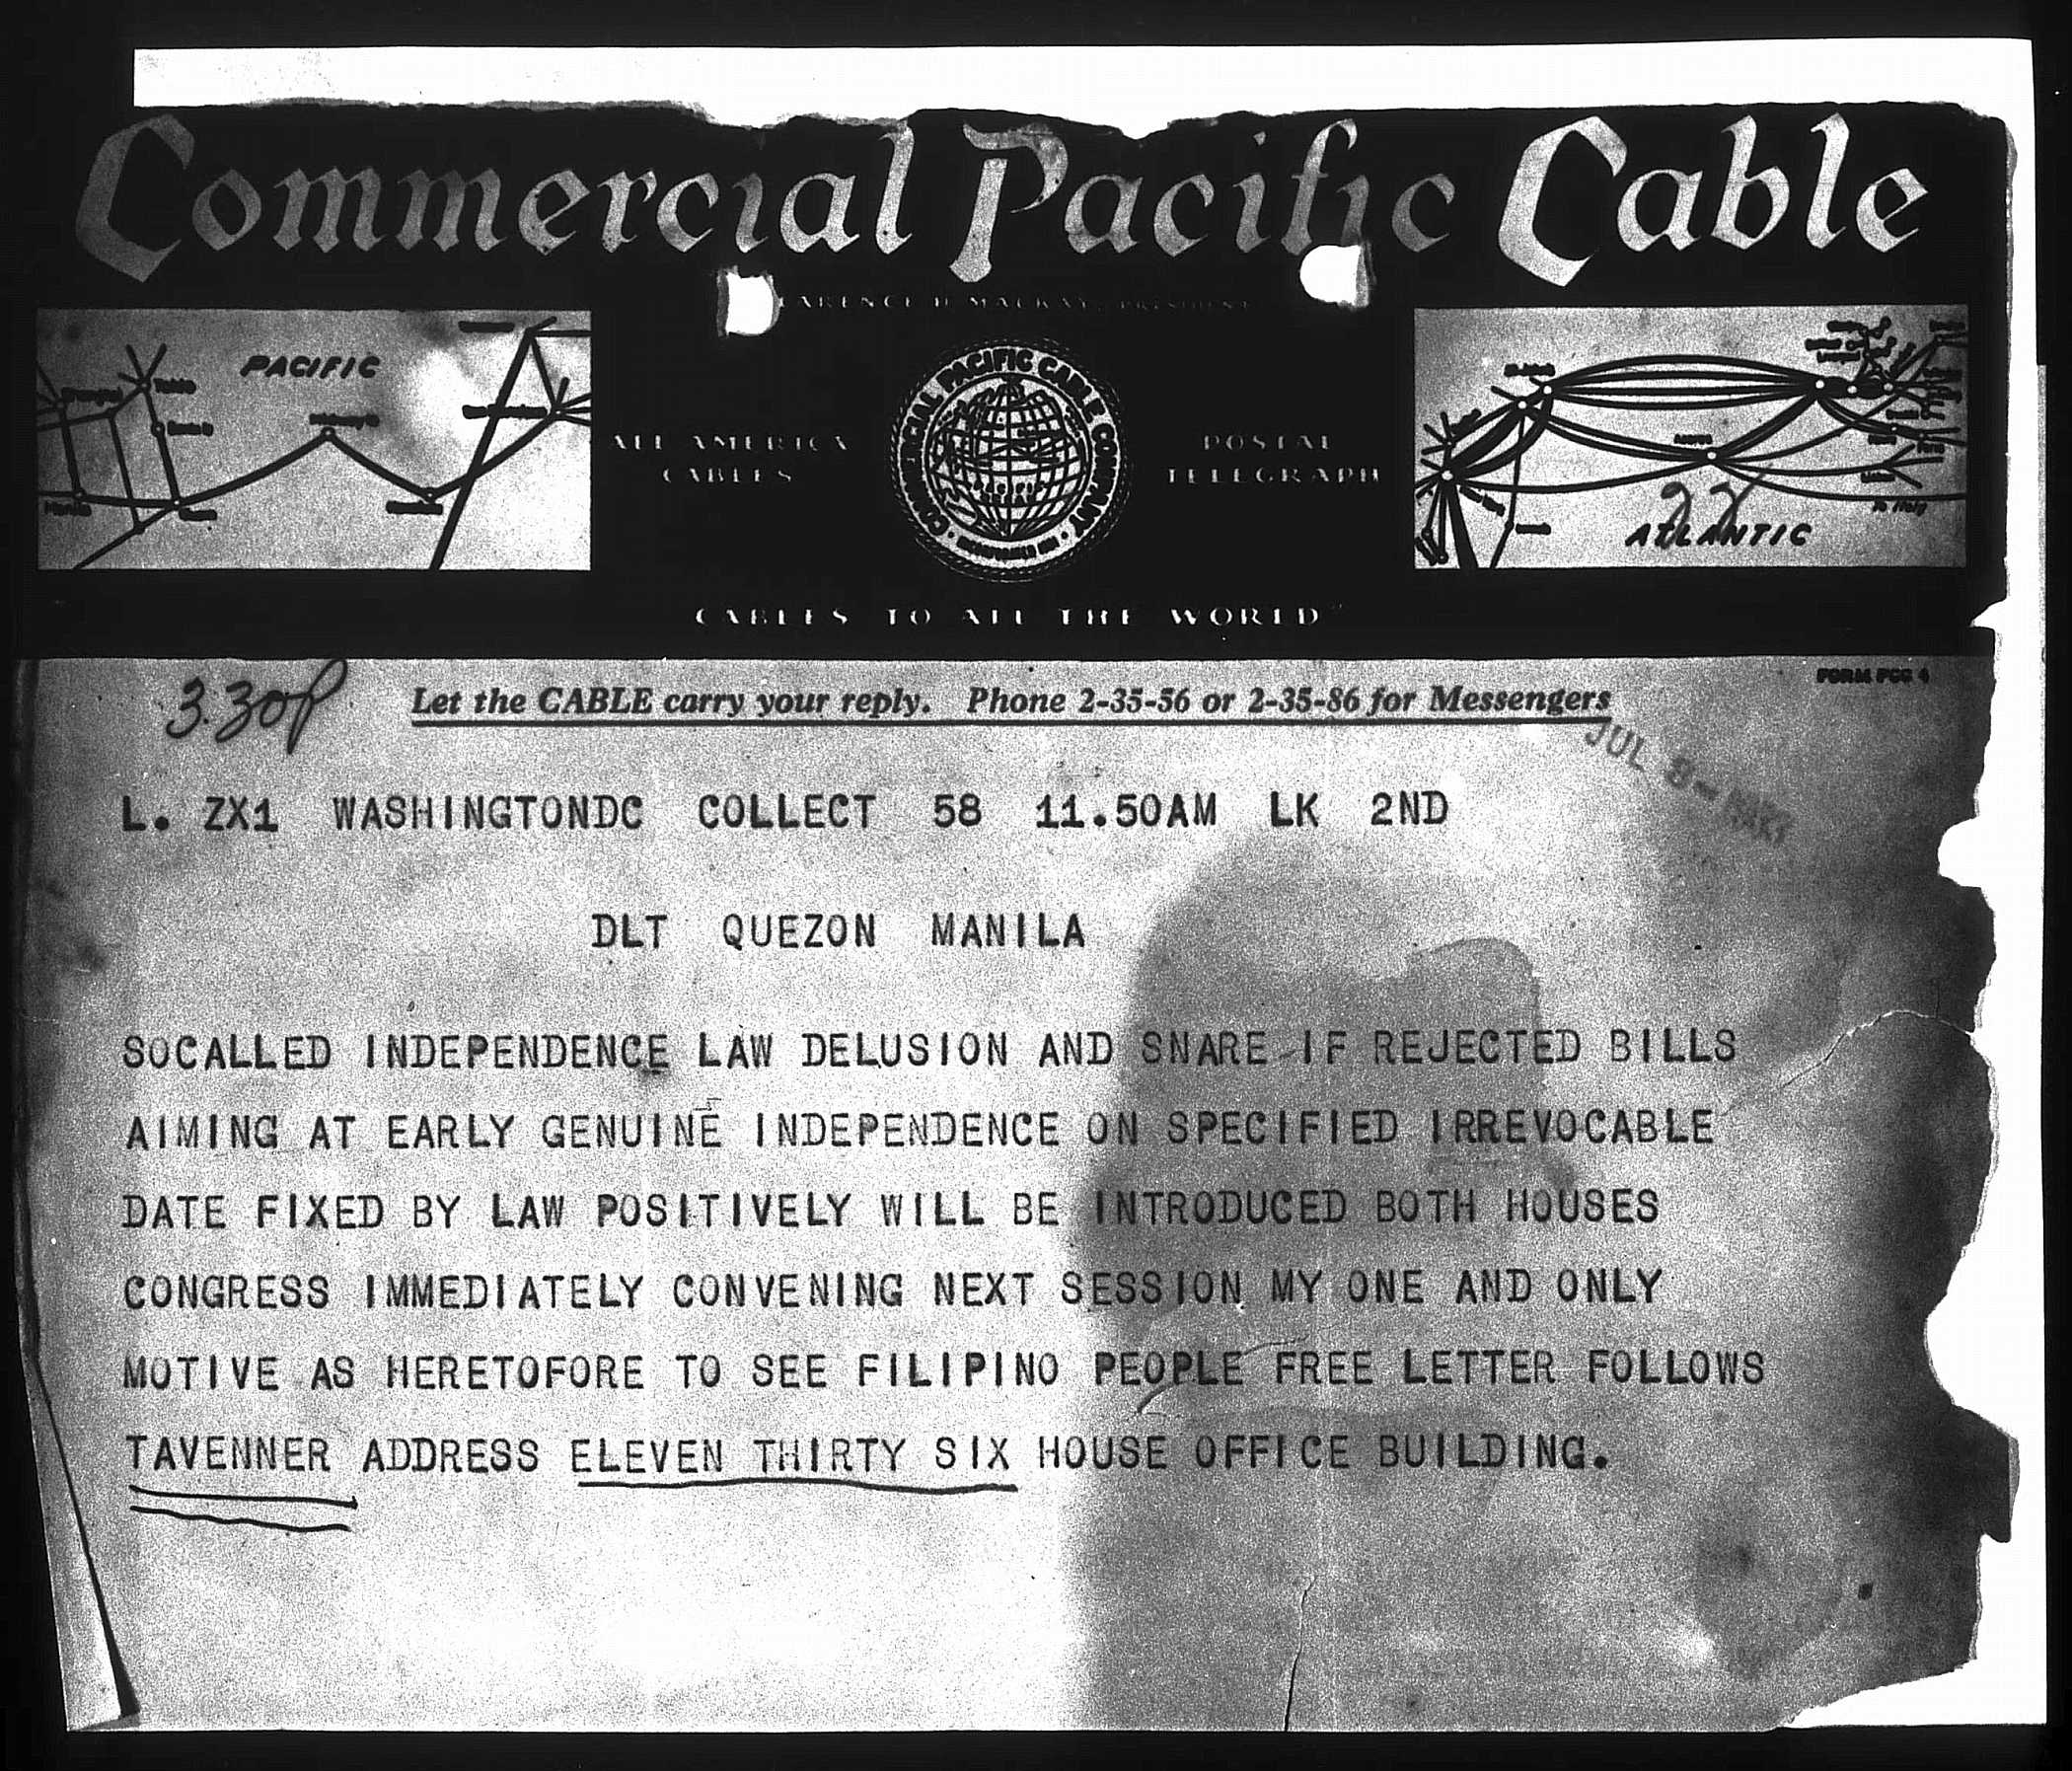 Commercial Pacific Cable
CLARENCE H. MACKAY, PRESIDENT
PACIFIC
ALL AMERICA
CABLES
COMMERCIAL PACIFIC CABLE COMPANY
POSTAL
TELEGRAPH
ATLANTIC
22
To Italy
CABLES TO ALL THE WORLD"
FORM PCC 4
3.30P
Let the CABLE carry your reply. Phone 2-35-56 or 2-35-86 for Messengers
JUL 3-
L. ZX1 WASHINGTONDC COLLECT 58 11.50AM LK 2ND
DLT QUEZON MANILA
SOCALLED INDEPENDENCE LAW DELUSION AND SNARE IF REJECTED BILLS
AIMING AT EARLY GENUINE INDEPENDENCE ON SPECIFIED IRREVOCABLE
DATE FIXED BY LAW POSITIVELY WILL BE INTRODUCED BOTH HOUSES
CONGRESS IMMEDIATELY CONVENING NEXT SESSION MY ONE AND ONLY
MOTIVE AS HERETOFORE TO SEE FILIPINO PEOPLE FREE LETTER FOLLOWS
TAVENNER ADDRESS ELEVEN THIRTY SIX HOUSE OFFICE BUILDING.